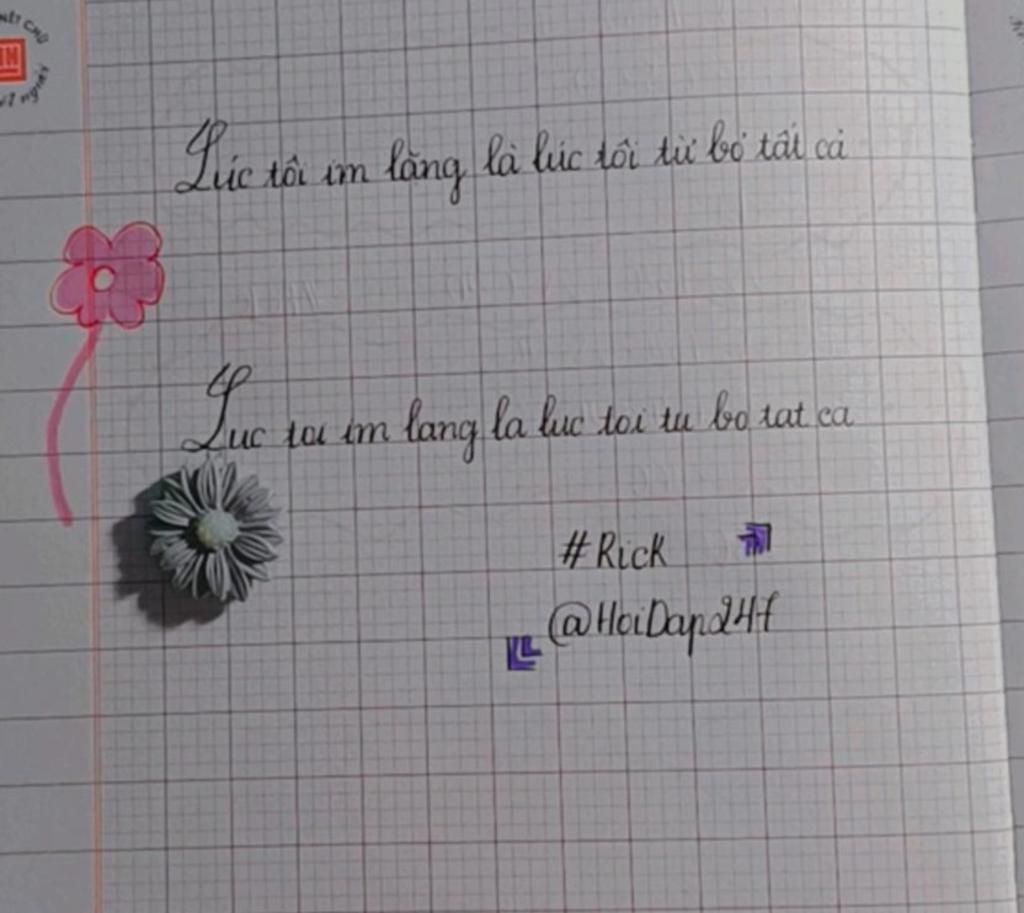 NÉT CHỮ
Lúc tôi im lặng là lúc tôi từ bỏ tất cả
Luc toi im lang la luc toi tu bo tat ca
#Rick
@HoiDap24H